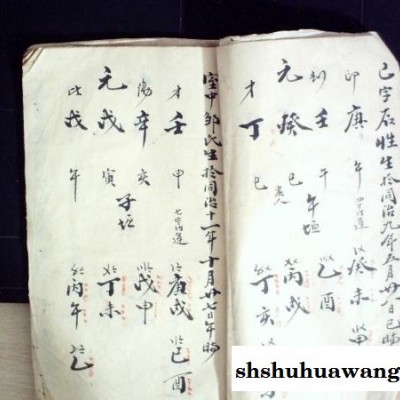 生於同治九年五月廿八日巳時
印 庚 午 癸未
壬 午 午垣 乙酉
元 癸 巳 丙戌
才 丁 巳 丁亥
室中鄒氏生於同治十一年十月廿七日午時
才 壬 申 庚戌 己酉
傷 辛 亥 子垣 戊申
元 戊 寅 丁未
比 戊 午 丙午 乙
shshuhuawang